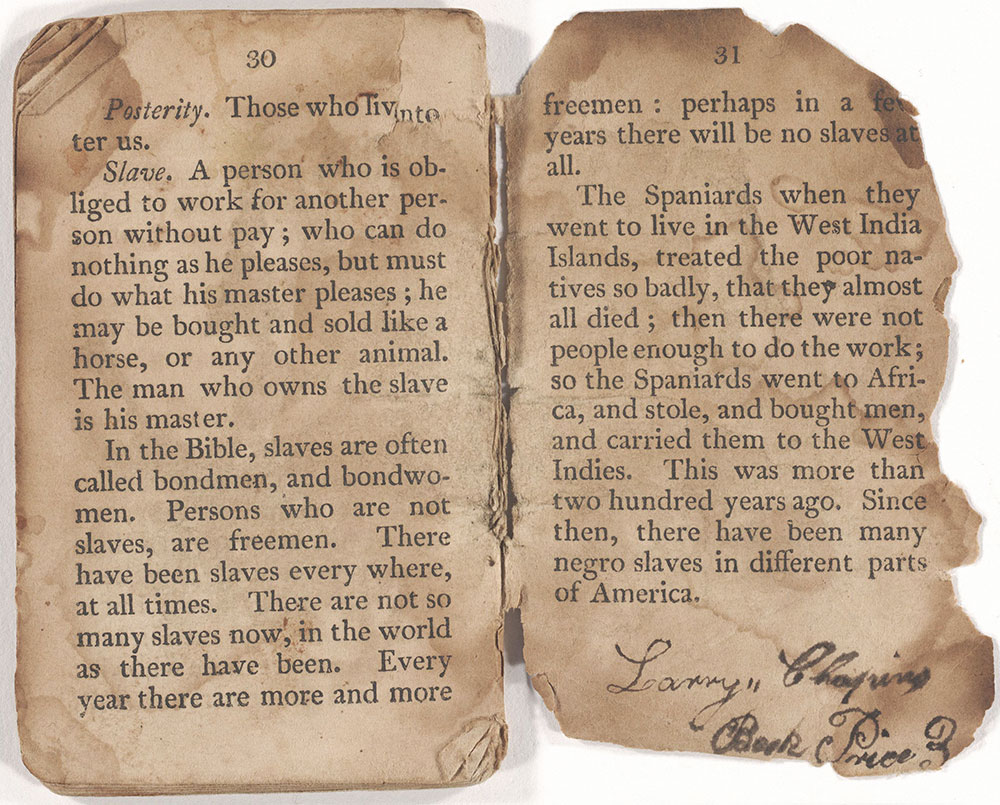 30
Posterity. Those who liv nto
ter us.
Slave. A person who is ob-
liged to work for another per-
son without pay; who can do
nothing as he pleases, but must
do what his master pleases; he
may be bought and sold like a
horse, or any other animal.
The man who owns the slave
is his master.
In the Bible, slaves are often
called bondmen, and bondwo-
men. Persons who are not
slaves, are freemen. There
have been slaves every where,
at all times. There are not so
many slaves now, in the world
as there have been. Every
year there are more and more
31
freemen: perhaps in a few
years there will be no slaves at
all.
The Spaniards when they
went to live in the West India
Islands, treated the poor na-
tives so badly, that they almost
all died; then there were not
people enough to do the work;
so the Spaniards went to Afri-
ca, and stole, and bought men,
and carried them to the West
Indies. This was more than
two hundred years ago. Since
then, there have been many
negro slaves in different parts
of America.
Larry,, Chapins
Book Price 3